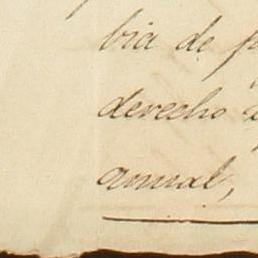 bia de p
derecho a
annual,